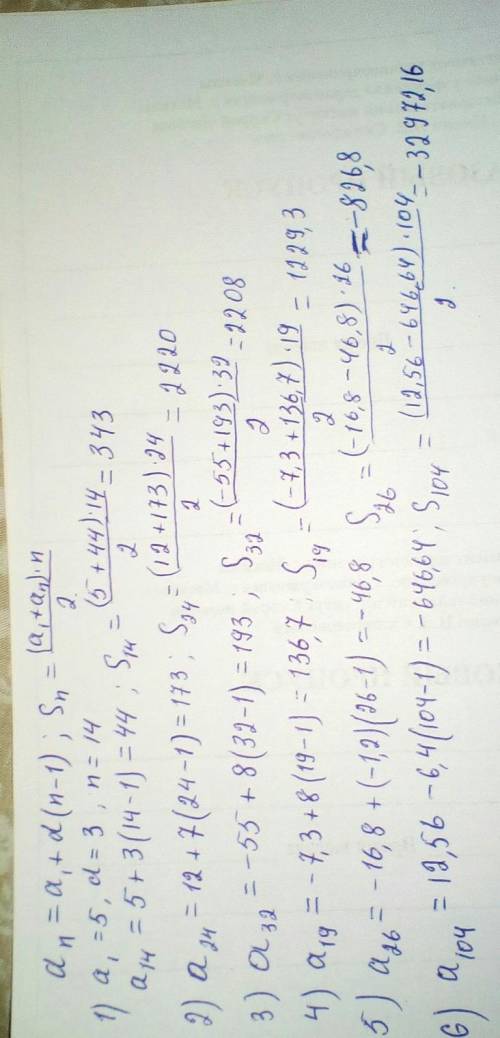 aₙ = a₁ + d(n−1) ; Sₙ = (a₁+aₙ)·n / 2
1) a₁ = 5, d = 3, n = 14
a₁₄ = 5 + 3(14−1) = 44 ; S₁₄ = (5+44)·14 / 2 = 343
2) a₂₄ = 12 + 7(24−1) = 173 ; S₂₄ = (12+173)·24 / 2 = 2220
3) a₃₂ = −55 + 8(32−1) = 193 ; S₃₂ = (−55+193)·32 / 2 = 2208
4) a₁₉ = −7,3 + 8(19−1) = 136,7 ; S₁₉ = (−7,3+136,7)·19 / 2 = 1229,3
5) a₂₆ = −16,8 + (−1,2)(26−1) = −46,8 S₂₆ = (−16,8−46,8)·26 / 2 = −826,8
6) a₁₀₄ = 12,56 − 6,4(104−1) = −646,64 ; S₁₀₄ = (12,56−646,64)·104 / 2. = −32972,16